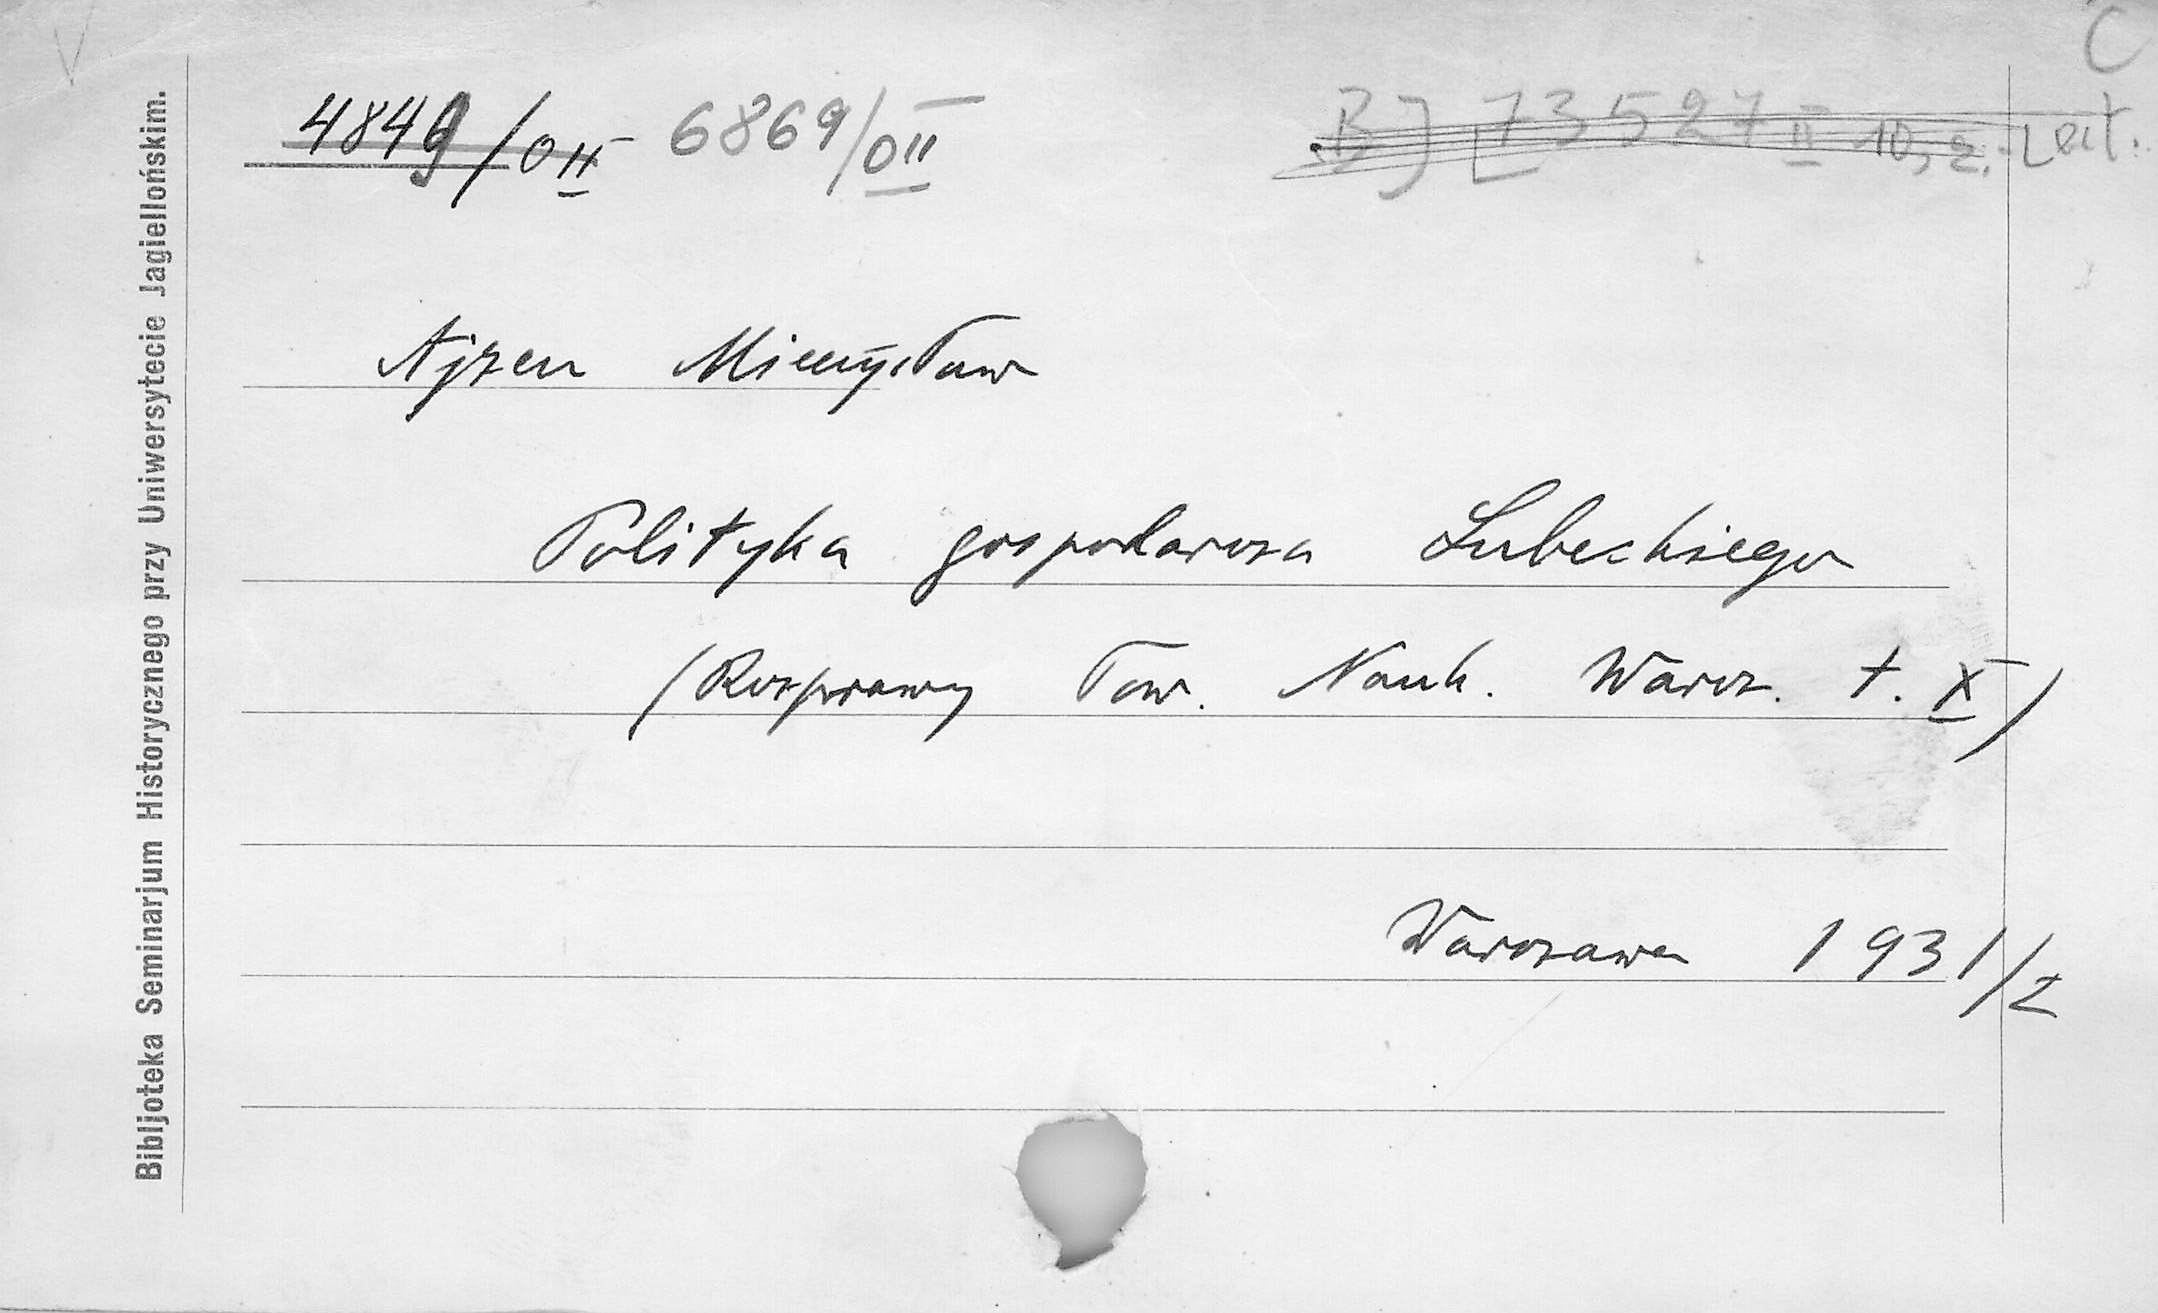 V
C
4849/OII 6869/OII BJ 73527 II 10, 2. Lect.
Ajzen Mieczysław
Polityka gospodarcza Lubeckiego
(Rozprawy Tow. Nauk. Warsz. t. X)
Warszawa 1931/2
Bibljoteka Seminarjum Historycznego przy Uniwersytecie Jagiellońskim.